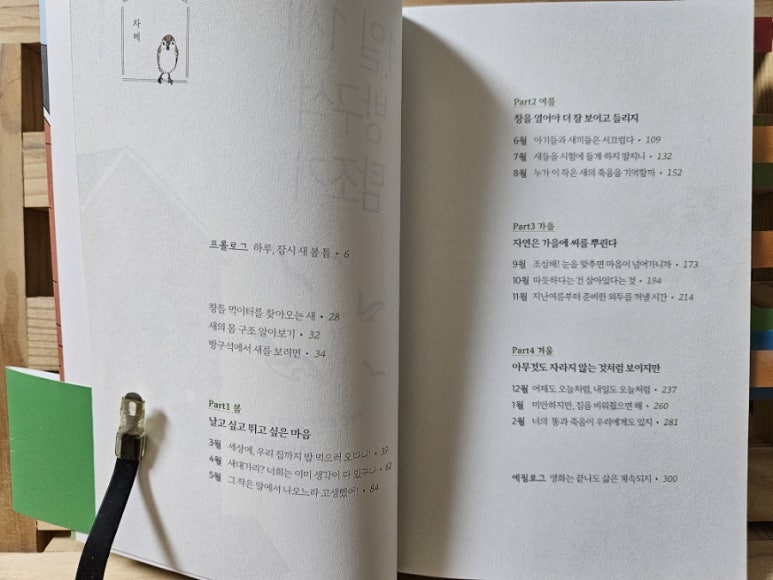 차례
프롤로그 하루, 잠시 새 볼 틈 • 6
창틀 먹이터를 찾아오는 새 • 28
새의 몸 구조 알아보기 • 32
방구석에서 새를 보려면 • 34
Part1 봄
날고 싶고 뛰고 싶은 마음
3월 세상에, 우리 집까지 밥 먹으러 오다니! • 39
4월 새대가리? 너희는 이미 생각이 다 있구나 • 62
5월 그 작은 알에서 나오느라 고생했어! • 84
Part2 여름
창을 열어야 더 잘 보이고 들리지
6월 아기들과 새끼들은 서끄럽다 • 109
7월 새들을 시험에 들게 하지 말지니 • 132
8월 누가 이 작은 새의 죽음을 기억할까 • 152
Part3 가을
자연은 가을에 씨를 뿌린다
9월 조심해! 눈을 맞추면 마음이 넘어가니까 • 173
10월 따듯하다는 건 살아있다는 것 • 194
11월 지난여름부터 준비한 외투를 꺼낼 시간 • 214
Part4 겨울
아무것도 자라지 않는 것처럼 보이지만
12월 어제도 오늘처럼, 내일도 오늘처럼 • 237
1월 미안하지만, 집을 비워줬으면 해 • 260
2월 너의 똥과 죽음이 우리에게도 있지 • 281
에필로그 영화는 끝나도 삶은 계속되지 • 300